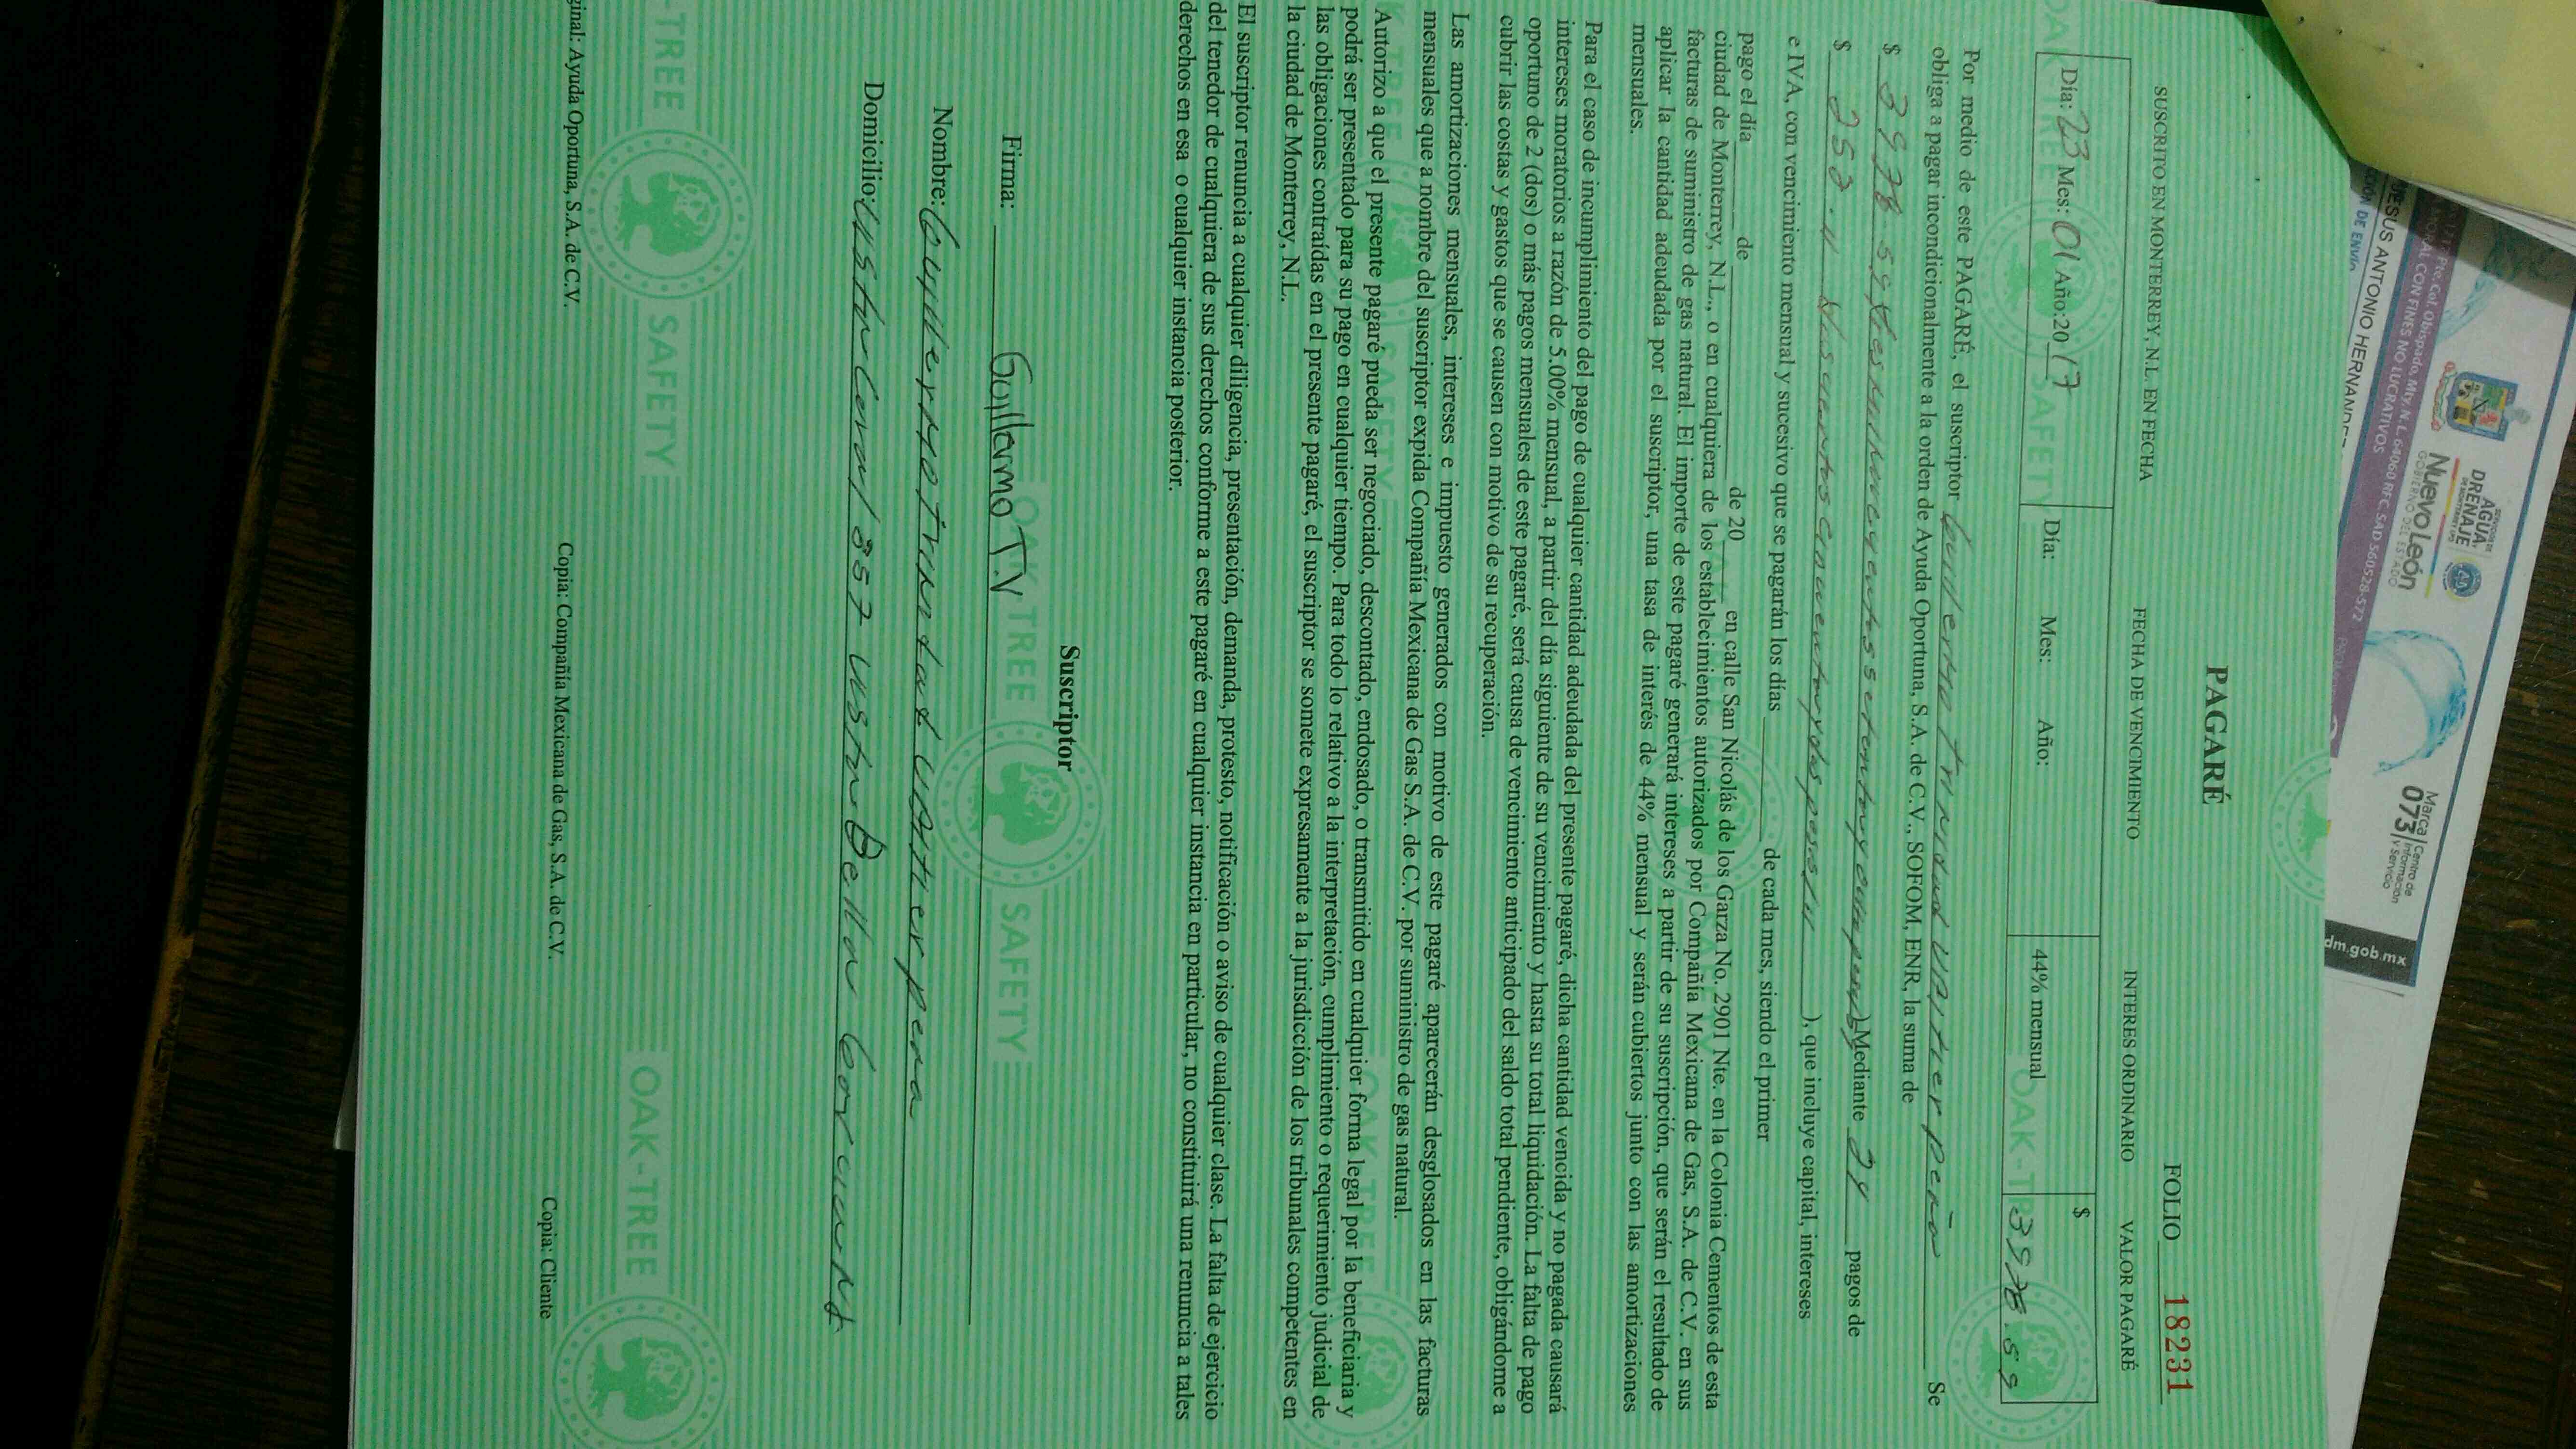 PAGARÉ
FOLIO 18231
SUSCRITO EN MONTERREY, N.L. EN FECHA FECHA DE VENCIMIENTO INTERES ORDINARIO VALOR PAGARÉ
Día: 23 Mes: 01 Año:20 17 Día: Mes: Año: 44% mensual $ 3978.59
Por medio de este PAGARÉ, el suscriptor Guillermo Trinidad Peña Se
obliga a pagar incondicionalmente a la orden de Ayuda Oportuna, S.A. de C.V., SOFOM, ENR, la suma de
$ 3978.59 Mediante 24 pagos de
$ 252.11 ), que incluye capital, intereses
e IVA, con vencimiento mensual y sucesivo que se pagarán los días de cada mes, siendo el primer
pago el día de de 20 en calle San Nicolás de los Garza No. 2901 Nte. en la Colonia Cementos de esta
ciudad de Monterrey, N.L., o en cualquiera de los establecimientos autorizados por Compañía Mexicana de Gas, S.A. de C.V. en sus
facturas de suministro de gas natural. El importe de este pagaré generará intereses a partir de su suscripción, que serán el resultado de
aplicar la cantidad adeudada por el suscriptor, una tasa de interés de 44% mensual y serán cubiertos junto con las amortizaciones
mensuales.
Para el caso de incumplimiento del pago de cualquier cantidad adeudada del presente pagaré, dicha cantidad vencida y no pagada causará
intereses moratorios a razón de 5.00% mensual, a partir del día siguiente de su vencimiento y hasta su total liquidación. La falta de pago
oportuno de 2 (dos) o más pagos mensuales de este pagaré, será causa de vencimiento anticipado del saldo total pendiente, obligándome a
cubrir las costas y gastos que se causen con motivo de su recuperación.
Las amortizaciones mensuales, intereses e impuesto generados con motivo de este pagaré aparecerán desglosados en las facturas
mensuales que a nombre del suscriptor expida Compañía Mexicana de Gas S.A. de C.V. por suministro de gas natural.
Autorizo a que el presente pagaré pueda ser negociado, descontado, endosado, o transmitido en cualquier forma legal por la beneficiaria y
podrá ser presentado para su pago en cualquier tiempo. Para todo lo relativo a la interpretación, cumplimiento o requerimiento judicial de
las obligaciones contraídas en el presente pagaré, el suscriptor se somete expresamente a la jurisdicción de los tribunales competentes en
la ciudad de Monterrey, N.L.
El suscriptor renuncia a cualquier diligencia, presentación, demanda, protesto, notificación o aviso de cualquier clase. La falta de ejercicio
del tenedor de cualquiera de sus derechos conforme a este pagaré en cualquier instancia en particular, no constituirá una renuncia a tales
derechos en esa o cualquier instancia posterior.
Suscriptor
Firma: Guillermo T.V
Nombre: Guillermo Trinidad
Domicilio: 857
ginal: Ayuda Oportuna, S.A. de C.V. Copia: Compañía Mexicana de Gas, S.A. de C.V. Copia: Cliente
OAK-TREE SAFETY
AGUA Y DRENAJE
DE MONTERREY
Nuevo León
GOBIERNO DEL ESTADO
Marca 073 Centro de Información y Servicio
dm.gob.mx
Pte. Col. Obispado, Mty. N.L. 64060 RFC. SAD 560528-572
MORAL CON FINES NO LUCRATIVOS
JESUS ANTONIO HERNANDEZ
DE ENVIO